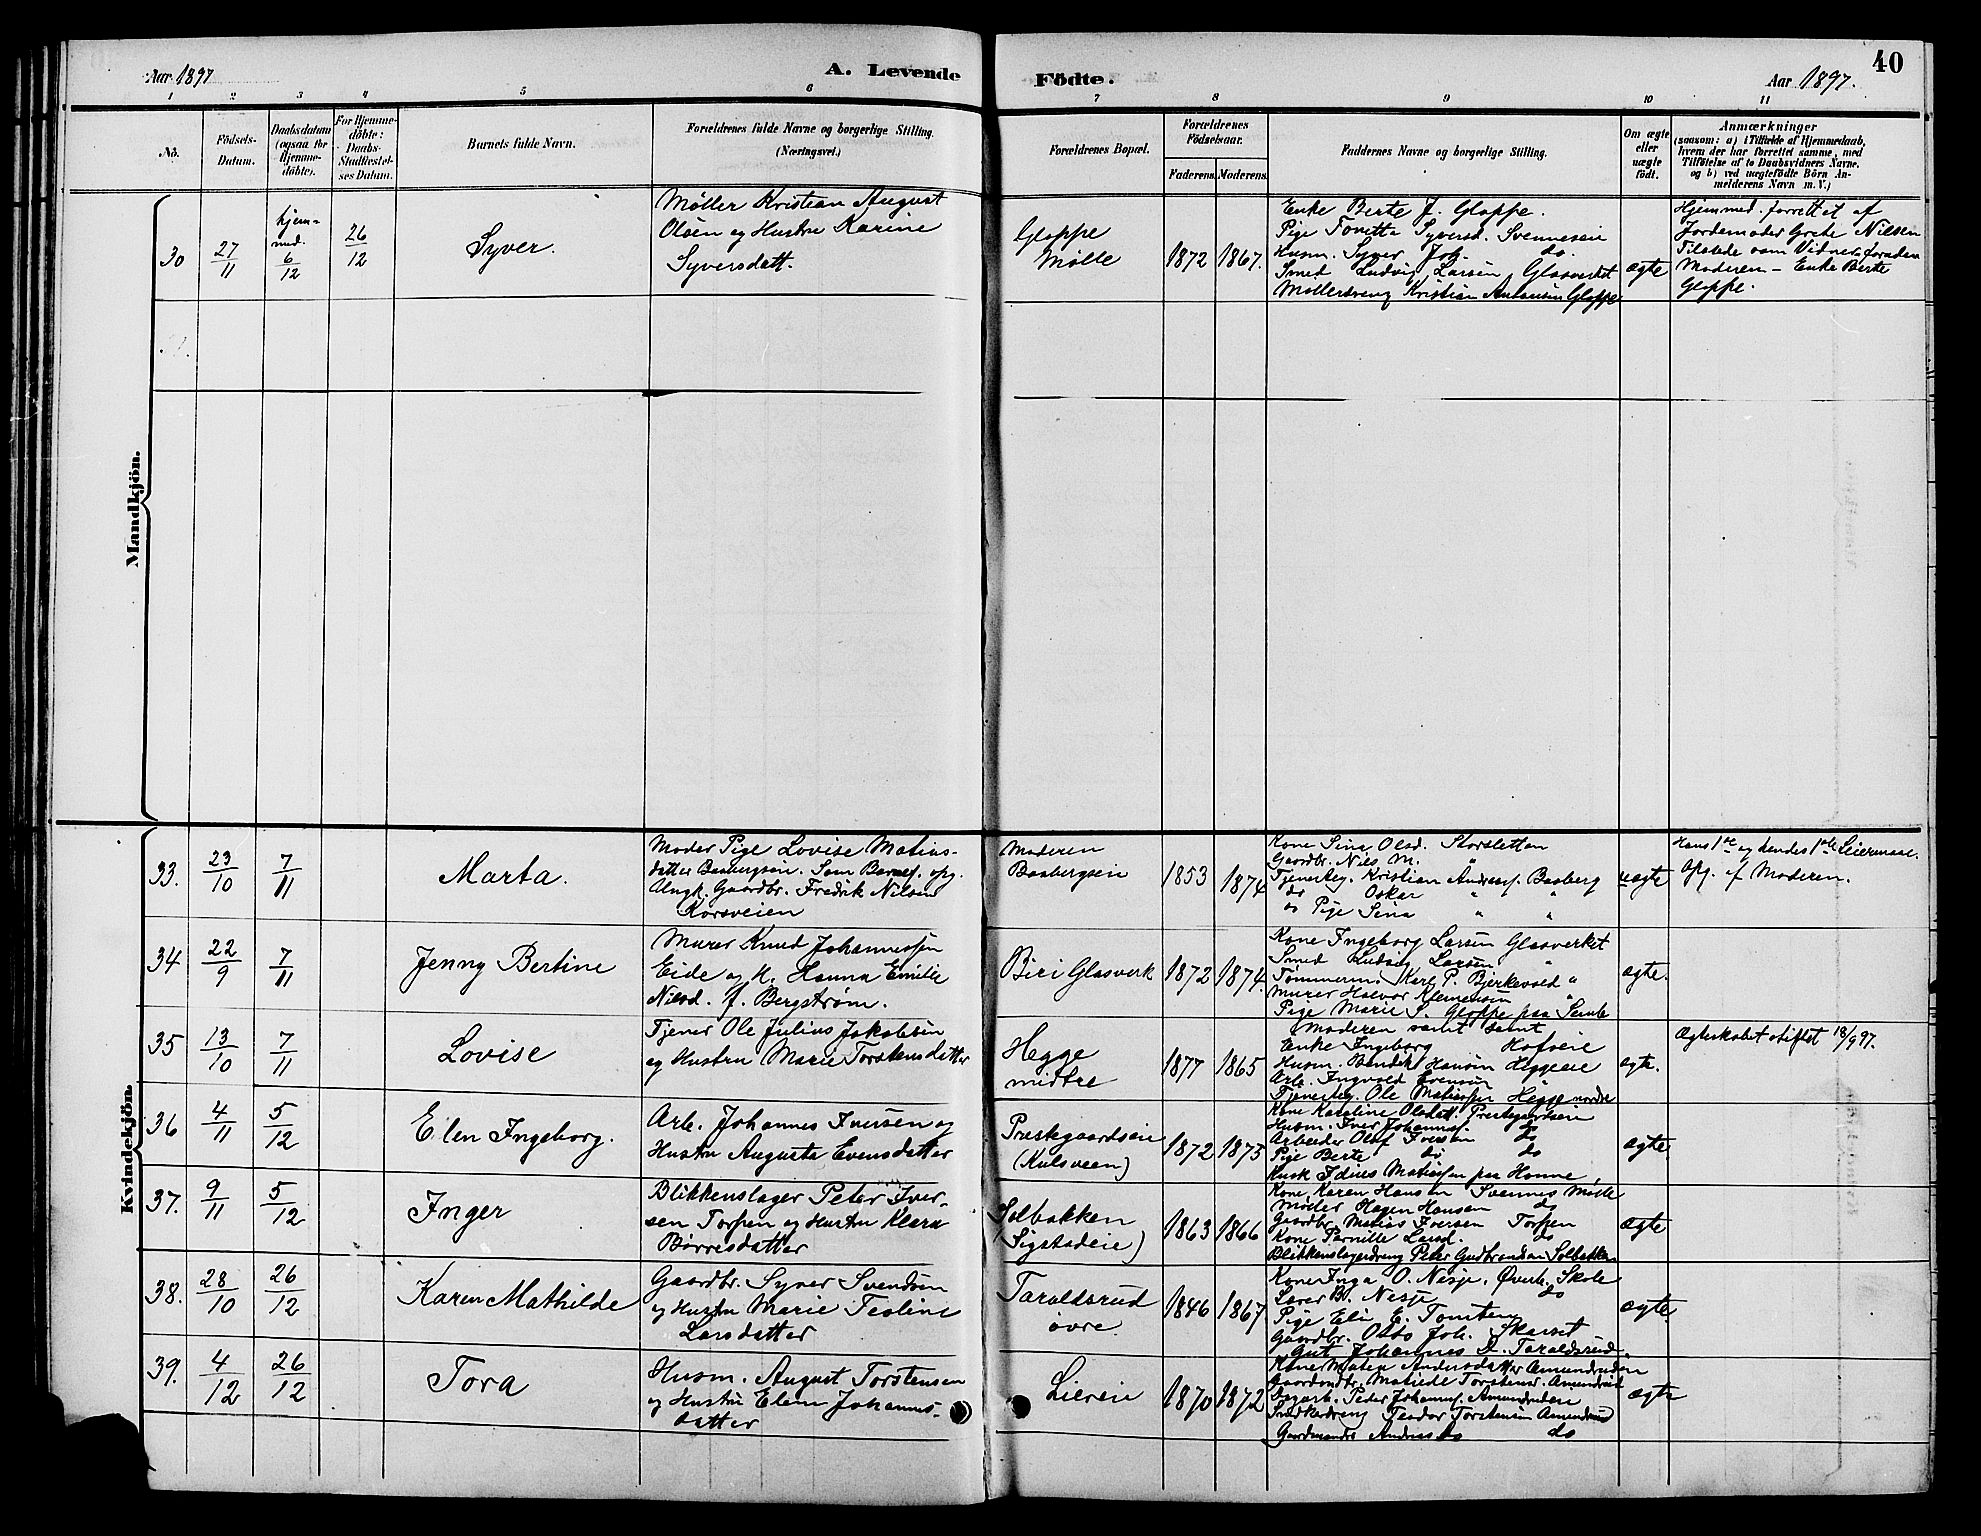 Aar 1897
A. Levende
Födte.
Aar 1897.
40
1 2 3 4 5 6 7 8 9 10 11
No.
Födsels-
Datum.
Daabsdatum
(ogsaa for
Hjemme-
döbte).
For Hjemme-
döbte:
Daabs-
Stadfæstel-
ses Datum.
Barnets fulde Navn.
Forældrenes fulde Navne og borgerlige Stilling.
(Næringsvei.)
Forældrenes Bopæl.
Forældrenes
Födselsaar.
Faderens. Moderens.
Faddernes Navne og borgerlige Stilling.
Om ægte
eller
uægte
födt.
Anmærkninger
(saasom: a) i Tilfælde af Hjemmedaab,
hvem der har forrettet samme, med
Tilföielse af to Daabsvidners Navne.
og b) ved uægtefödte Börn An-
melderens Navn m. V.)
Mandkjön.
30
27/11
hjem-
med.
6/12
26/12
Syver.
Møller Kristian August
Olsen og Hustru Karine
Syversdatt.
Gloppe
Mølle
1872
1867.
Enke Berte J. Gloppe.
Pige Tonetta Syversd. Svenneseie
Husm. Syver Joh. do.
Smed Ludvig Larsen Glasverket
Møllerdreng Kristian Antonsen Gloppe
ægte
Hjemmed. forrettet af
Jordemoder Grete Nilsen
Tilstede som Vidner foruden
Moderen – Enke Berte
Gloppe.
Kvindekjön.
33.
23/10
7/11
Marta.
Moder Pige Lovise Matias-
datter Baabergseie. Som Barnef. opg.
Ungk. Gaardbr. Fredrik Nilsen
Korsveien
Moderen
Baabergseie
1853
1874
Kone Sina Olsd. Storsletten
Gaardbr. Nils M. "
Tjenerteg. Kristian Andreas. Baaberg
do Oskar " "
do Pige Sina " "
uægte
Hans 1ste og hendes 1ste Leiermaal.
Opg. af Moderen.
34
22/9
7/11
Jenny Bertine
Murer Knud Johannessen
Eide og H. Hanna Emilie
Nilsd. f. Bergstrøm.
Biri Glasverk
1872
1874.
Kone Ingeborg Larsen Glasverket
Smed Ludvig Larsen "
Tømmerm. Karl P. Bjerkevold "
Murer Halvor Klemensen "
Pige Marie S. Gloppe paa Semb
ægte.
35
13/10
7/11
Lovise
Tjener Ole Julius Jakobsen
og Hustru Marie Torstensdatter
Hegge
midtre
1877
1865
Moderen samt
Enke Ingeborg Hofseie
Husm. Bendik Hansen Heggeeie
Arb. Ingvald Evensen "
Tjenerteg. Ole Matiassen Hegge nordre
ægte.
Ægteskabet stiftet 18/9 97.
36
4/11
5/12
Elen Ingeborg.
Arb. Johannes Iversen og
Hustru Auguste Evensdatter
Prestegaardseie
(Kulsveen)
1872
1875
Kone Karoline Olsdatt. Prestegaardseie
Husm. Iver Johannes. do
Arbeider Olaf Iversen do
Pige Berte do do
Kusk Edines Matiassen paa Honne
ægte.
37.
9/11
5/12
Inger
Blikkenslager Peter Iver-
sen Torpen og Hustru Klara
Børresdatter
Solbakken
(Sigstadeie)
1863
1866
Kone Karen Hansen Svennes Mølle
Møller Hagen Hansen do
Gaardbr. Matias Iversen Torpen
Kone Pernille Larsd. do
Blikkenslagerdreng Peter Gudbrandsen Solbakken
ægte
38.
28/10
26/12
Karen Mathilde
Gaardbr. Syver Svendsen
og Hustru Marie Teoline
Larsdatter
Taraldsrud
øvre.
1846
1867
Kone Inga O. Nesje. Øverb. Skole
Lærer B. Nesje do
Pige Eli E. Tomten
Gaardbr. Olaus Joh. Skarset
Gut Johannes S. Taraldsrud.
ægte.
39.
4/12
26/12
Tora
Husm. August Torstensen
og Hustru Elen Johannes-
datter
Liereie
1870
1872
Kone Maten Andersdatter Amundruden
Matilde Torstensd. Amundrud
Dagarb. Peder Johannes. Amundruden
Snedkerdreng Teodor Torstensen Amundrud
Gaardmands Andreas do do
ægte